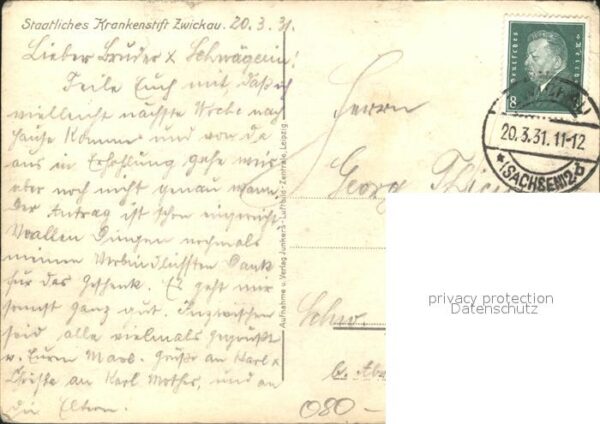 Staatliches Krankenstift Zwickau. 20.3.31.
Lieber Bruder & Schwägerin!
Teile Euch mit, daß ich
vielleicht nächste Woche nach
Hause komme und von da
aus in Erhohlung gehe wir
aber noch nicht genau wann.
Der Antrag ist schon eingereicht
Vorallen Dingen nochmals
meinen Verbindlichsten Dank
für das Geschenk. Es geht mir
sonst ganz gut. Inzwischen
seid alle vielmals gegrüßt
v. Eurem Grüße an Karl &
an Karl und an
die Eltern.
Aufnahme u. Verlag Junkers-Luftbild-Zentrale, Leipzig
Herrn
Georg
b.
080-
DEUTSCHES REICH
8
20.3.31.11-12
*(SACHSEN)2b
privacy protection
Datenschutz